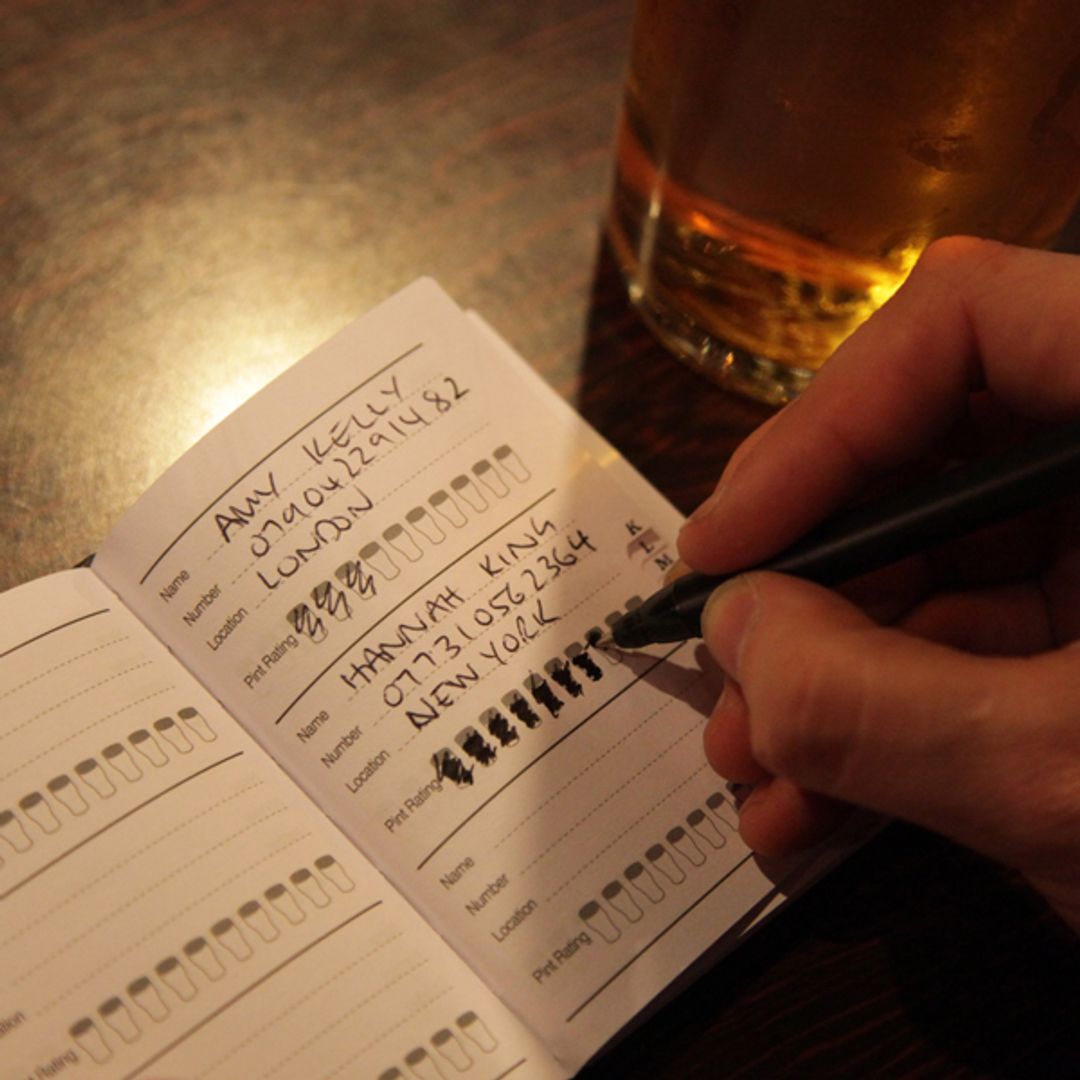 Name AMY KELLY
Number 079042291482
Location LONDON
Pint Rating
Name HANNAH KING
Number 07731056 2364
Location NEW YORK
Pint Rating
Name
Number
Location
Pint Rating
K
L
M